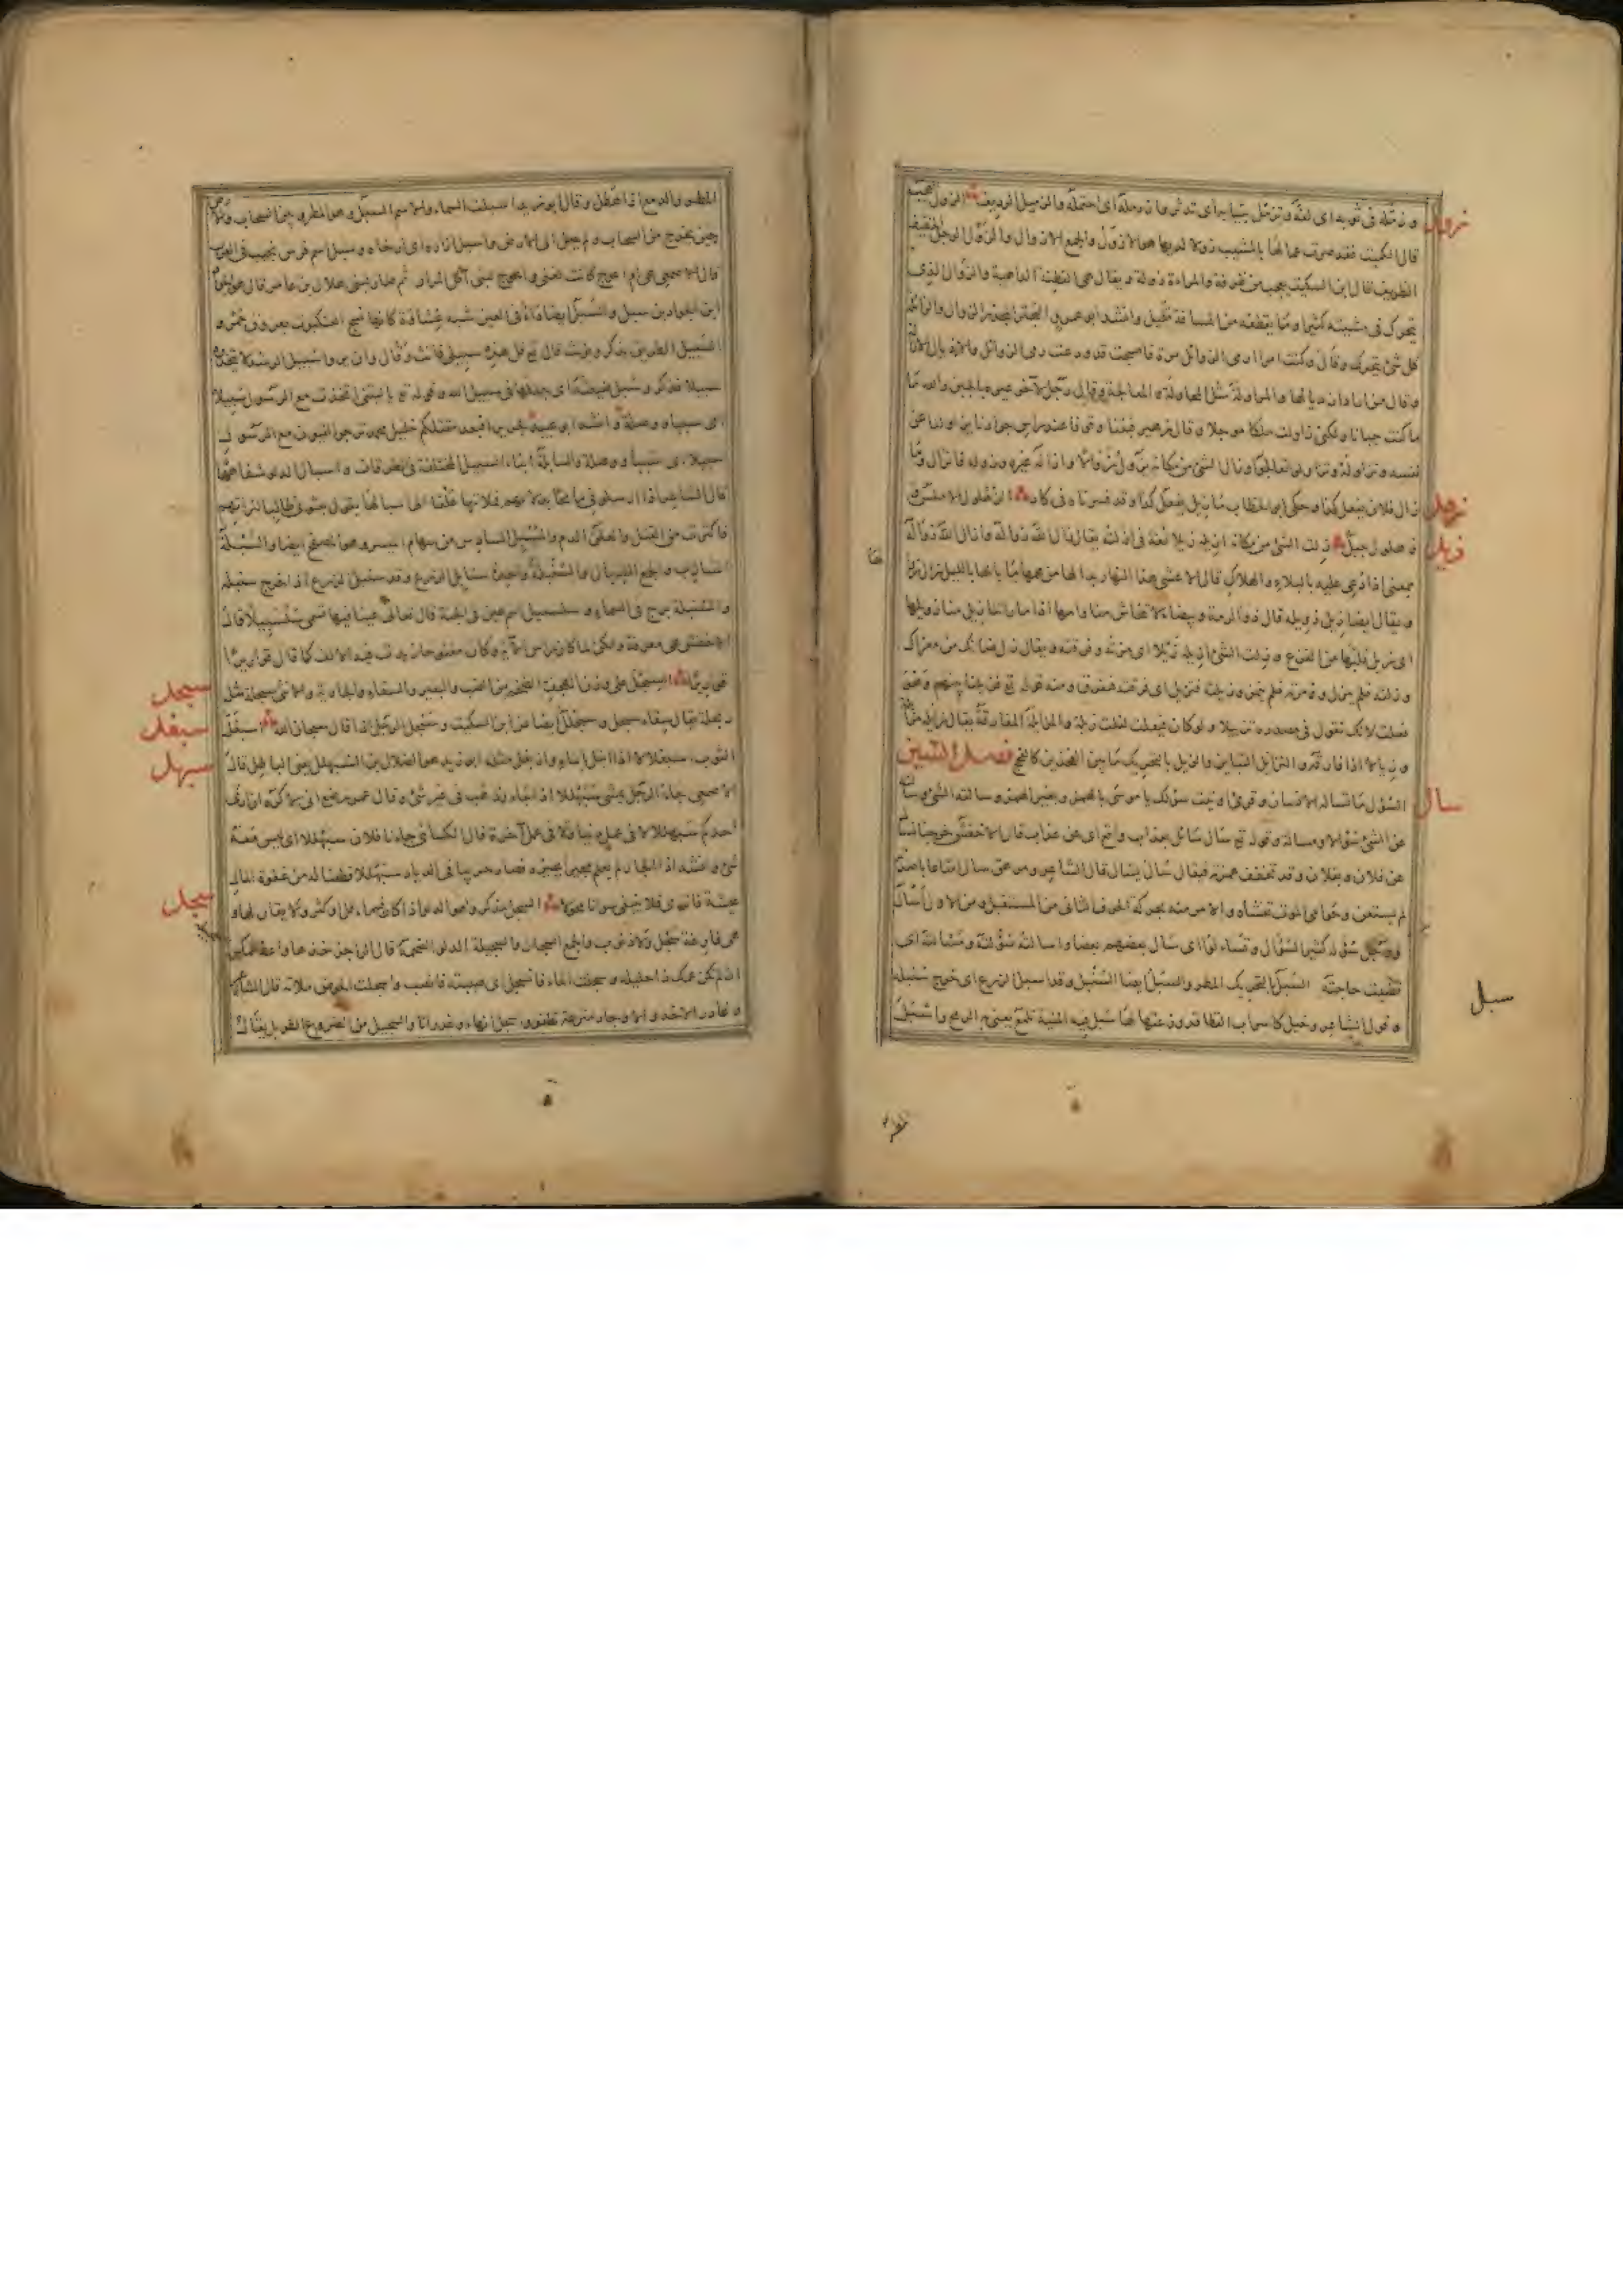 زول
و زمّله فى ثوبه اى لفّه و تزمّل بثيابه اى تدثّر وازدمله اى احتمله والزميل الرديف الزول العجب
قال الكميت فقد صرت عما لها بالمشيب زولا لديها هو الازول والجمع الازوال والزول الرجل الخفيف
الظريف قال ابن السكيت يعجب من ظرفه والمراءة زولة و يقال هى الفطنة الداهية والزوال الذى
يتحرك فى مشيته كثيرا وما يقطعه من المسافة قليل وانشد ابو عمرو البحتر المجذر الزوال والزائلة
كل شئ يتحرك وقال وكنت امرا ارمى الزوائل مرة فاصبحت قد ودعت رمى الزوائل
والمزاولة مثل المحاولة و المعالجة وقال رجل لآخر عيره بالجبن والله ما
ما كنت جبانا ولكن زاولت ملكا موجلا و قال زهير فبتنا وقوفا عند راس جوادنا يزاولنا عن
نفسه و نزاوله وتزاولوا تعالجوا وزال الشئ من مكانه يزول زوالا وازاله غيره وزوله فانزال وما
زهل
زال فلان يفعل كذا وحكى ابو الخطاب ما زيل يفعل كذا وقد فسرناه فى كاد الزهلول الاملس و
زيل
زهلول جبل زلت الشئ من مكانه ازيله زيلا لغة فى ازلته يقال زال الله زواله وازال الله زواله
بمعنى اذا دعى عليه بالبلاء والهلاك قال الاعشى هذا النهار بدا لها من همها ما بالها بالليل زال زوالها
و يقال ايضا زيل زويله قال ذو الرمة وبيضاء لا تنحاش منا وامها اذا ما راتنا زيل منا زويلها
اى زيل قلبها من الفزع و زلت الشئ ازيله زيلا اى مزته و فرقته و يقال زل ضانك من معزاك
و زلته فلم ينزل و مزته فلم ينمز وزيلته فتزيل اى فرقته فتفرق ومنه قوله تع فزيلنا بينهم وهو
فعلت لانك تقول فى مصدره تزييلا ولو كان فيعلت لقلت زيلة والمزايلة المفارقة يقال زايله مزايلة
و زيالا اذا فارقه والتزايل التباين والزيل بالتحريك ما بين الفخذين كالفحج فصل السين
سال
السؤل ما يسأله الانسان و قرئ اوتيت سؤلك يا موسى بالهمز وبغير الهمز وسالته الشئ وسالته
عن الشئ سؤالا ومسالة وقوله تع سأل سائل بعذاب واقع اى عن عذاب قال الاخفش خرجنا نسأل
عن فلان وبفلان وقد تخفف همزته فيقال سال يسال قال الشاعر ومرهق سال امتاعا باصدته
لم يستعن وحوامى الموت تغشاه والامر منه سل بحركة الحرف الثانى من المستقبل ومن الاول اسأل
ورجل سؤلة كثير السؤال وتساءلوا اى سأل بعضهم بعضا واسالته سؤلته ومسالته اى
سبل
قضيت حاجته السبل بالتحريك المطر والسبل ايضا السنبل وقد اسبل الزرع اى خرج سنبله
و قول الشاعر وخيل كاسراب القطا قد وزعتها لها سبل فيه المنية تلمع يعنى به الرمح واسبل
المطر والدمع اذا هطل وقال ابو زيد اسبلت السماء والاسم السبل وهو المطر بين السحاب والارض
حين يخرج من السحاب ولم يصل الى الارض واسبل ازاره اى ارخاه و سبل اسم فرس نجيب فى العرب
قال الاصمعى هى ام اعوج كانت لغنى واعوج لبنى آكل المرار ثم صار لبنى هلال بن عامر قال هو الجواد
ابن الجواد بن سبل والسبل ايضا داء فى العين شبه غشاوة كانها نسج العنكبوت بعروق حمر و
السبيل الطريق يذكر ويؤنث قال تع قل هذه سبيلى فانث وقال وان يروا سبيل الرشد لا يتخذوه
سبيلا فذكر و سبل ضيعته اى جعلها فى سبيل الله وقوله تع يا ليتنى اتخذت مع الرسول سبيلا
اى سببا ووصلة وانشد ابو عبيدة لجرير افبعد مقتلكم خليل محمد ترجو القيون مع الرسول
سبيلا اى سببا ووصلة والسابلة ابناء السبيل المختلفة فى الطرقات و اسبال الدلو شفاهها
قال الشاعر اذا ارسلونى مائحا بدلائهم فملأتها علقا الى اسبالها يقول بعثونى طالبا لتراتهم
فاكثرت من القتل والعلق الدم والمسبل السادس من سهام الميسر وهو المصفح ايضا والسبلة
الشارب والجمع السبال والسنبلة واحدة سنابل الزرع وقد سنبل الزرع اذا اخرج سنبله
والسنبلة برج فى السماء و سلسبيل اسم عين فى الجنة قال تعالى عينا فيها تسمى سلسبيلا قال
الاخفش هى معرفة ولكن لما كان راس آية وكان مفتوحا زيدت فيه الالف كما قال قواريرا
سبحل
قواريرا السبحل على وزن الهجف الضخم من الضب والبعير والسقاء والجارية والانثى سبحلة مثل
سبغل
ربحلة يقال سقاء سبحل و سبحلل ايضا عن ابن السكيت و سبحل الرجل اذا قال سبحان الله اسبغل
سبهل
الثوب اسبغلالا اذا ابتل بالماء وازبغل مثله ابو زيد هو الضلال بن السبهلل يعنى الباطل قال
الاصمعى جاء الرجل يمشى سبهللا اذا جاء وذهب فى غير شئ وقال عمر رضع انى لاكره ان ارى
احدكم سبهللا لا فى عمل دنيا ولا فى عمل آخرة قال الكسائى جاءنا فلان سبهللا اى ليس معه
شئ وانشد اذا الجار لم يعلم مجيرا يجيره فصار حريبا فى الديار سبهللا قطعنا له من عفوة المال
سجل
عيشة فاثرى فلا يبغى سوانا محولا السجل مذكر وهو الدلو اذا كان فيه ماء قل او كثر ولا يقال لها و
هى فارغة سجل ولا ذنوب والجمع السجال والسجيلة الدلو الضخمة قال الراجز خذها واعط عمك
ان لم يكن عمك ذا حليله و سجلت الماء فانسجل اى صببته فانصب واسجلت الحوض ملاته قال الشاعر
و غادر الاخذ والاوجاد مترعة تطفو و سجل انهاء وغدرانا والسجيل من الضروع الطويل يقال